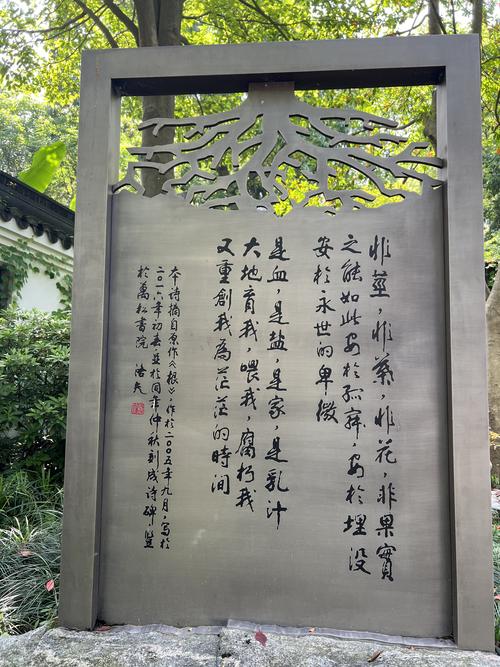 非莖，非葉，非花，非果實
之能如此安於孤寂，安於埋没
安於永世的卑微
是血，是鹽，是家，是乳汁
大地育我，喂我，腐朽我
又重創我為茫茫的時間
本詩摘自原作《根》，作於二〇〇五年九月，寫於
二〇一六年初春並於同年仲秋刻成詩碑豎
於萬松書院